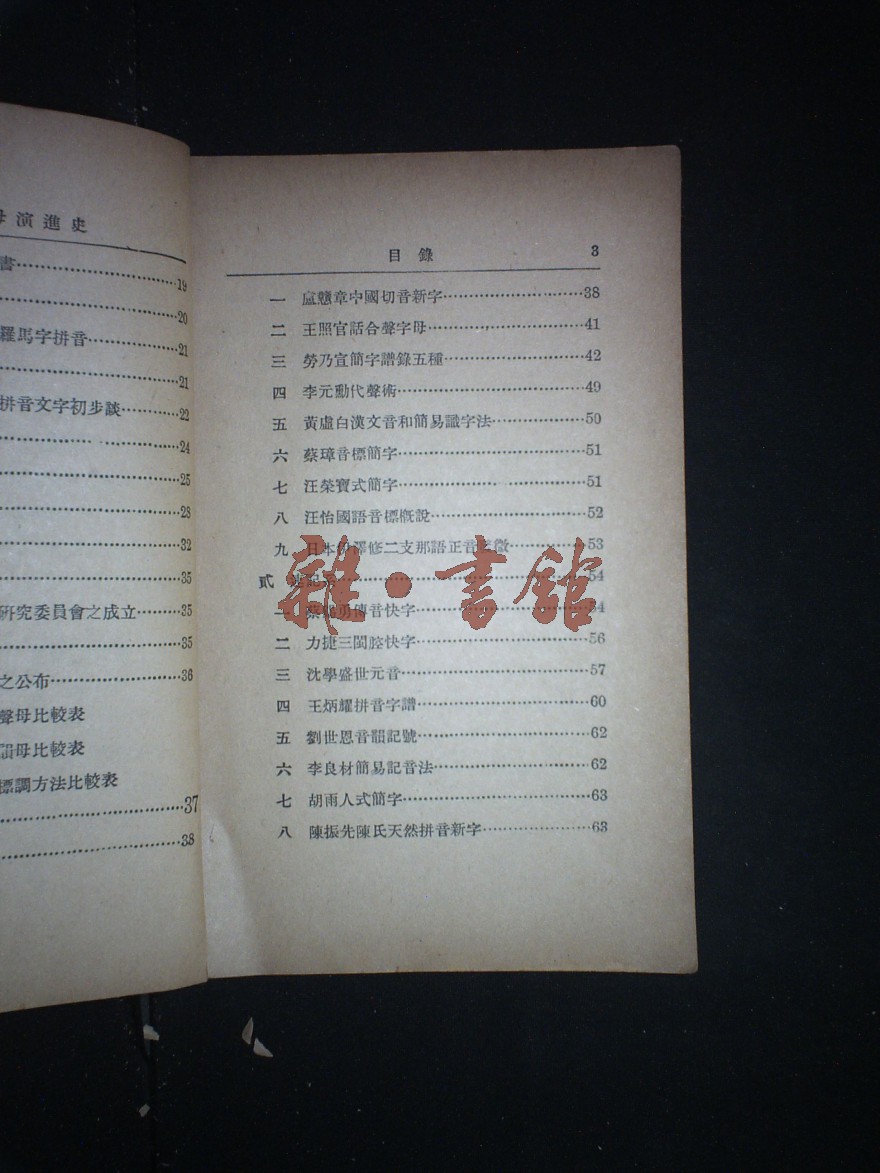 母演進史
書 19
20
羅馬字拼音 21
21
拼音文字初步談 22
24
25
28
32
35
研究委員會之成立 35
35
之公布 36
聲母比較表
韻母比較表
標調方法比較表
37
38
目錄 3
一 盧戇章中國切音新字 38
二 王照官話合聲字母 41
三 勞乃宣簡字譜錄五種 42
四 李元勳代聲術 49
五 黃虛白漢文音和簡易識字法 50
六 蔡璋音標簡字 51
七 汪榮寶式簡字 51
八 汪怡國語音標概說 52
九 日本伊澤修二支那語正音 微 53
貳 速記系 54
一 蔡錫勇傳音快字 54
二 力捷三閩腔快字 56
三 沈學盛世元音 57
四 王炳耀拼音字譜 60
五 劉世恩音韻記號 62
六 李良材簡易記音法 62
七 胡雨人式簡字 63
八 陳振先陳氏天然拼音新字 63
雜·書館